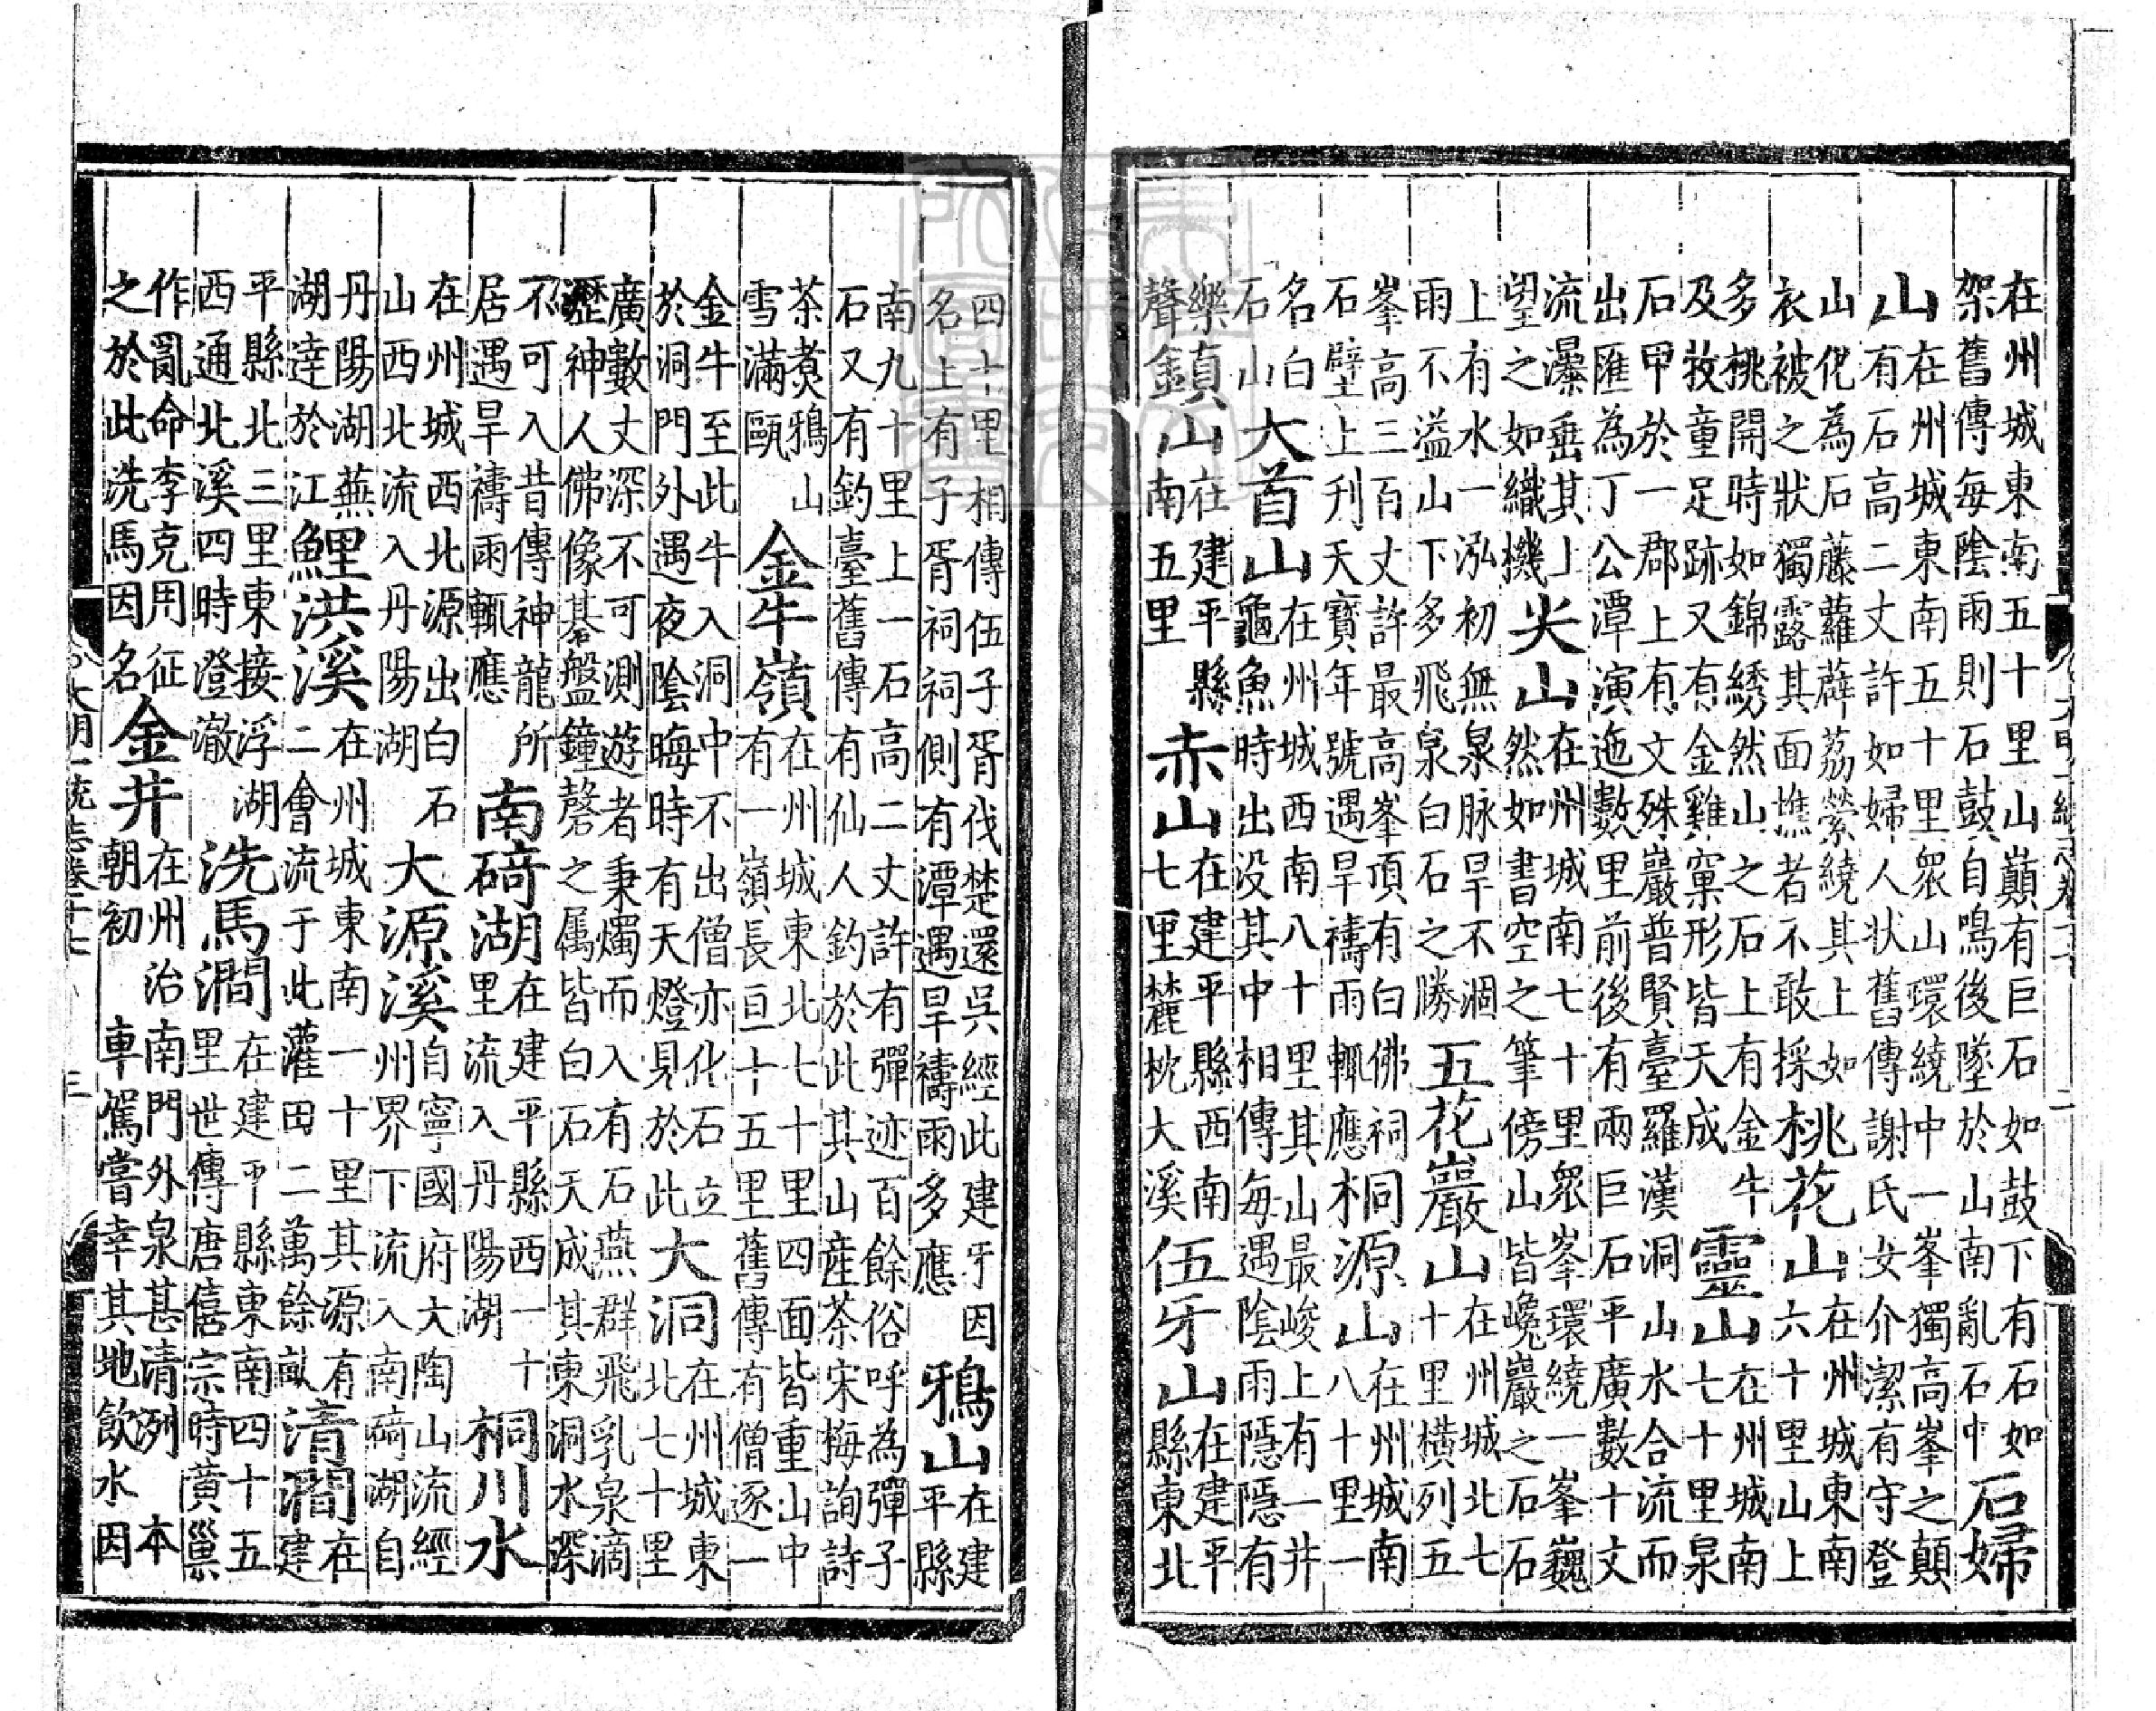 在州城東南五十里山巔有巨石如鼓下有石如
架舊傳每陰雨則石鼓自鳴後墜於山南亂石中
石婦
山
在州城東南五十里眾山環繞中一峯獨高峯之顛
有石高二丈許如婦人状舊傳謝氏女介潔有守登
山化為石藤蘿薜荔縈繞其上如
衣被之狀獨露其面樵者不敢採
桃花山
在州城東南
六十里山上
多桃開時如錦綉然山之石上有金牛
及牧童足跡又有金雞窠形皆天成
靈山
在州城南
七十里泉
石甲於一郡上有文殊巖普賢臺羅漢洞山水合流而
出匯為丁公潭演迤數里前後有兩巨石平廣數十丈
流瀑垂其上
望之如織機
尖山
在州城南七十里眾峯環繞一峯巍
然如書空之筆傍山皆巉巖之石石
上有水一泓初無泉脉旱不涸
雨不溢山下多飛泉白石之勝
五花巖山
在州城北七
十里橫列五
峯高三百丈許最高峯頂有白佛祠
石壁上刋天寶年號遇旱禱雨輒應
桐源山
在州城南
八十里一
名白
石山
大首山
在州城西南八十里其山最峻上有一井
龜魚時出没其中相傳每遇陰雨隱隱有
樂
聲
鎮山
在建平縣
南五里
赤山
在建平縣西南
七里麓枕大溪
伍牙山
在建平
縣東北
四十里相傳伍子胥伐楚還吳經此建牙因
名上有子胥祠祠側有潭遇旱禱雨多應
鴉山
在建
平縣
南九十里上一石高二丈許有彈迹百餘俗呼為彈子
石又有釣臺舊傳有仙人釣於此其山産茶宋梅詢詩
茶煮鴉山
雪滿甌
金牛嶺
在州城東北七十里四面皆重山中
有一嶺長亘十五里舊傳有僧逐一
金牛至此牛入洞中不出僧亦化石立
於洞門外遇夜陰晦時有天燈見於此
大洞
在州城東
北七十里
廣數丈深不可測遊者秉燭而入有石燕群飛乳泉滴
瀝神人佛像棊盤鐘磬之屬皆白石天成其東洞水深
不可入昔傳神龍所
居遇旱禱雨輒應
南碕湖
在建平縣西一十
里流入丹陽湖
桐川水
在州城西北源出白石
山西北流入丹陽湖
大源溪
自寧國府大陶山流經
州界下流入南碕湖自
丹陽湖蕪
湖達於江
鯉洪溪
在州城東南一十里其源有
二會流于此灌田二萬餘畝
清澗
在
建
平縣北三里東接浮湖
西通北溪四時澄澈
洗馬澗
在建平縣東南四十五
里世傳唐僖宗時黃巢
作亂命李克用征
之於此洗馬因名
金井
在州治南門外泉甚清洌 本
朝初 車駕嘗幸其地飲水因
大明一統志卷十七
三